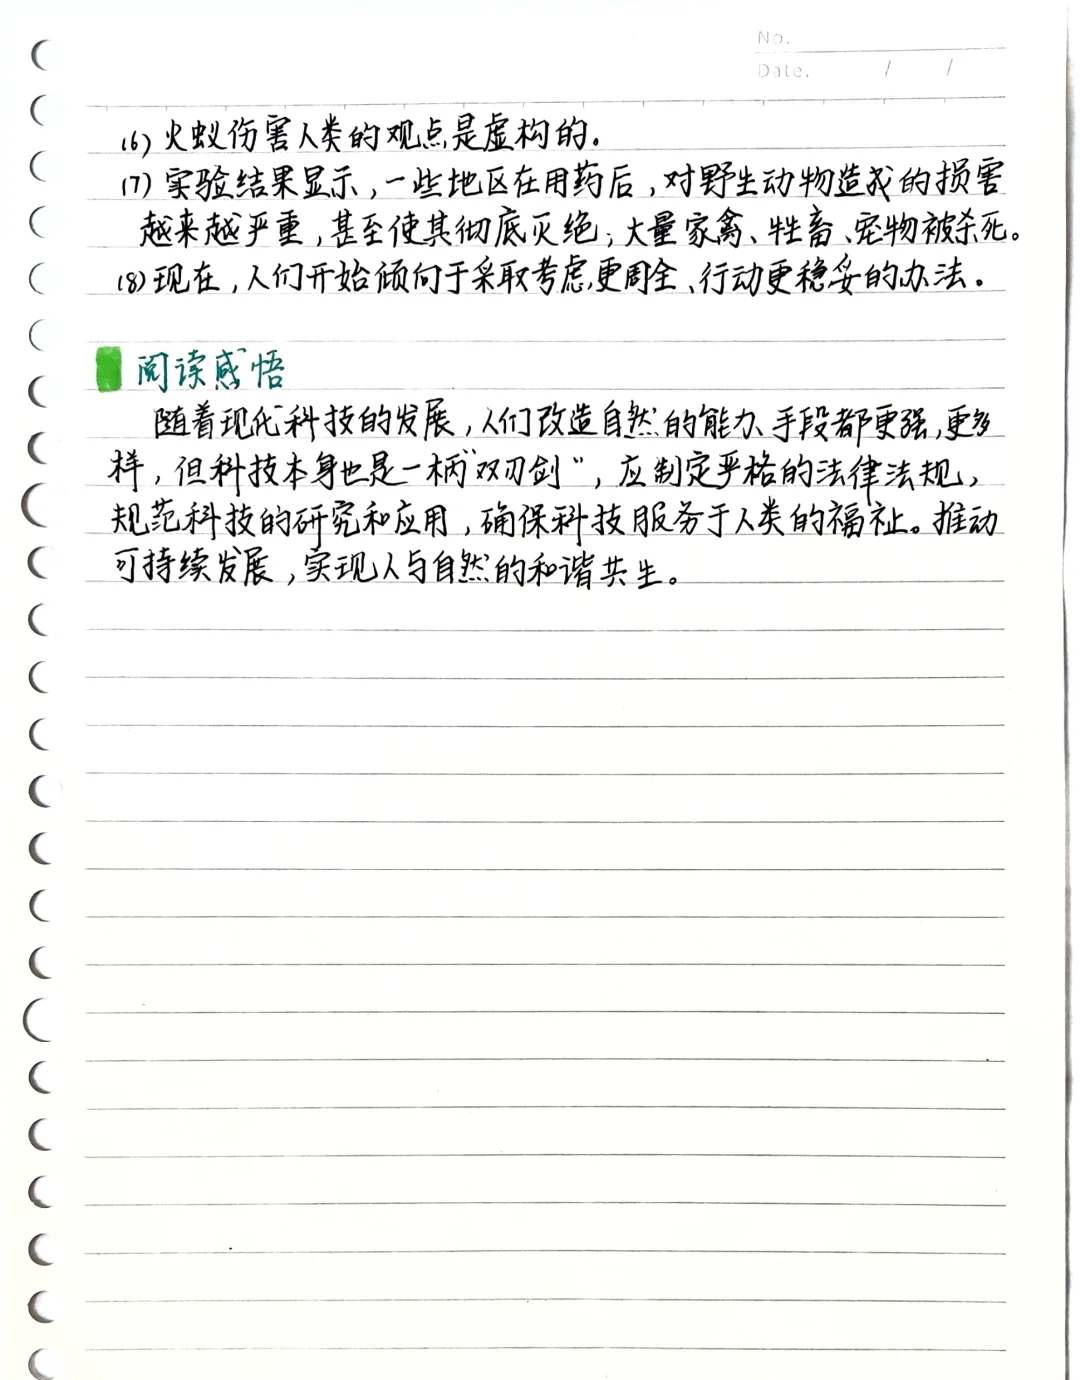 No.
Date. / /
(6) 火蚁伤害人类的观点是虚构的。
(7) 实验结果显示，一些地区在用药后，对野生动物造成的损害
越来越严重，甚至使其彻底灭绝；大量家禽、牲畜、宠物被杀死。
(8) 现在，人们开始倾向于采取考虑更周全、行动更稳妥的办法。
阅读感悟
随着现代科技的发展，人们改造自然的能力、手段都更强，更多
样，但科技本身也是一柄“双刃剑”，应制定严格的法律法规，
规范科技的研究和应用，确保科技服务于人类的福祉。推动
可持续发展，实现人与自然的和谐共生。